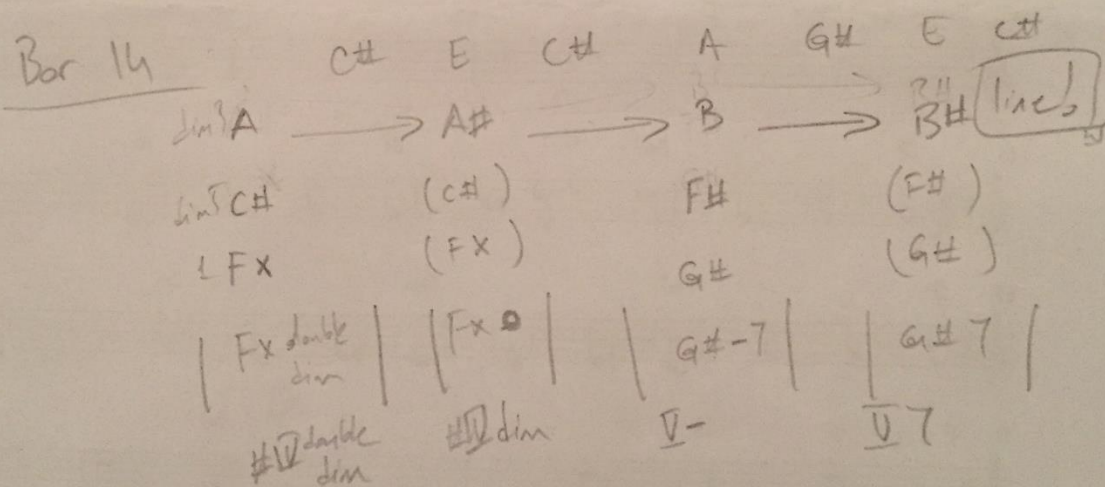 Bar 14 C# E C# A G# E C#
dim3 A → A# → B → B# line!
dim5 C# (C#) F# (F#)
1 Fx (Fx) G# (G#)
| Fx double dim | | Fx o | | G#-7 | | G#7 |
#IV double dim #IV dim V- V7